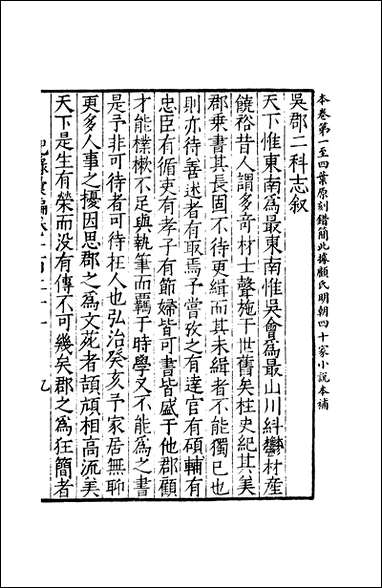 本卷第一至四葉原刻錯簡此據顧氏明朝四十家小說本補
吳郡二科志叙
天下惟東南爲最東南惟吳會爲最山川糾鬱材産
饒裕昔人謂多竒材士聲施于世舊矣柱史紀其美
郡乗書其長固不待更緝而其未緝者不能獨已也
則亦待善述者有取焉予嘗攷之有達官有碩輔有
忠臣有循吏有孝子有節婦皆可書皆盛于他郡顧
才能樸樕不足與執筆而羈于時學又不能爲之書
是予非可待者可待在人也弘治癸亥予家居無聊
更多人事之擾因思郡之爲文苑者頡頏相高流美
天下是生有榮而没有傳不可幾矣郡之爲狂簡者
紀録彙編卷一百二十一 九